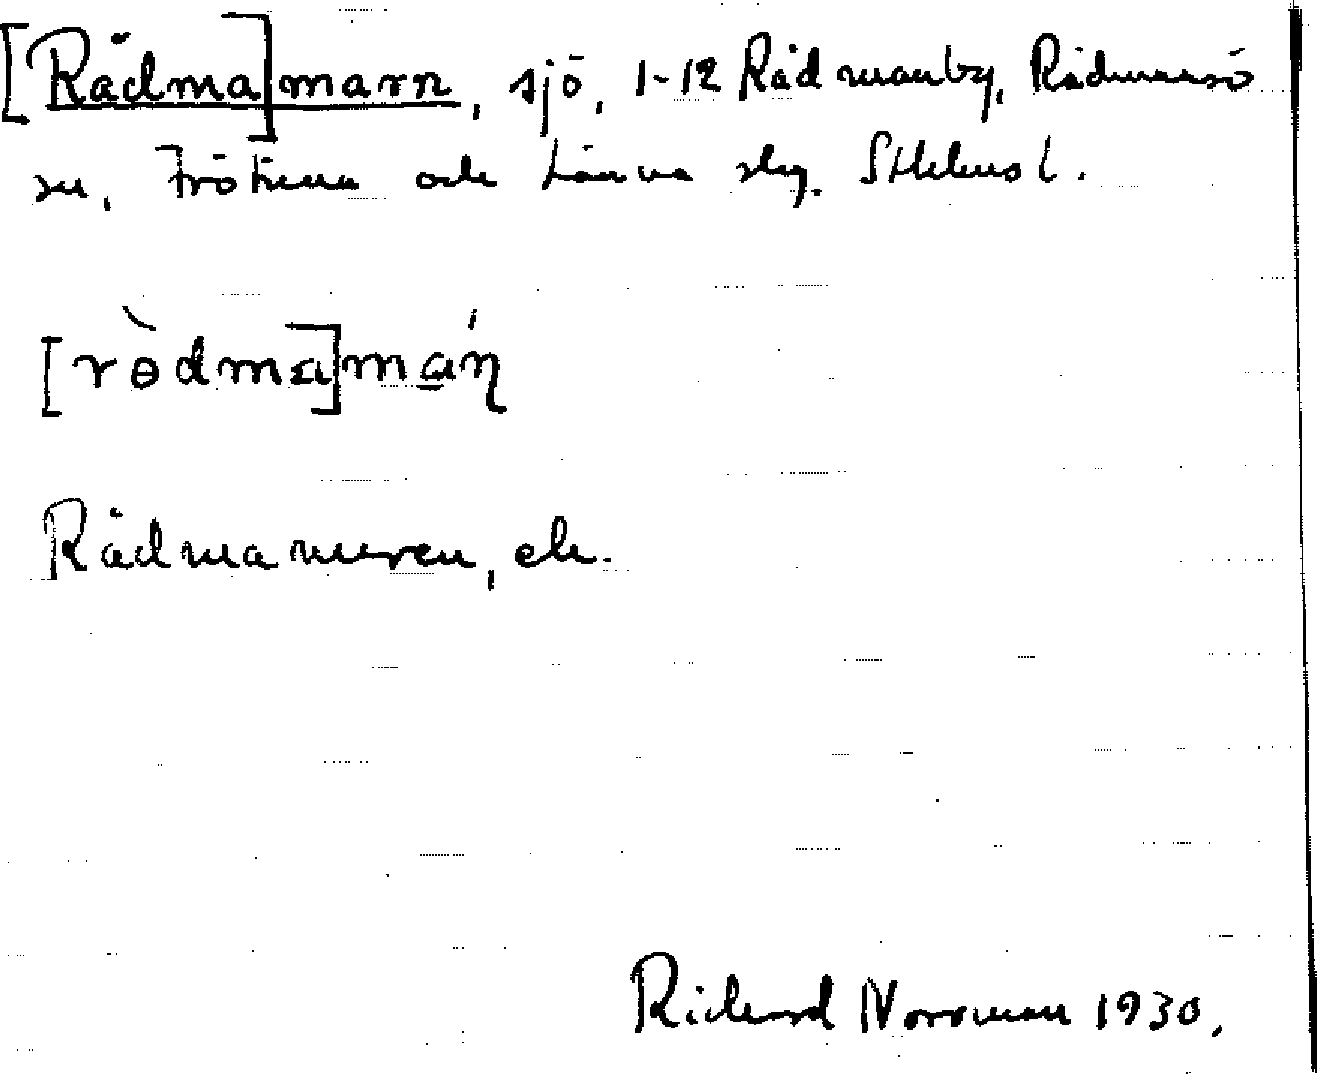 [Rådma]marn, sjö, 1-12 Rådmanby, Rådmansö
sn, Frötuna och Länna slg. Sthlms l.
[rɵ̀dma]máɳ
Rådmamuren, ek.
Richard Norrman 1930.